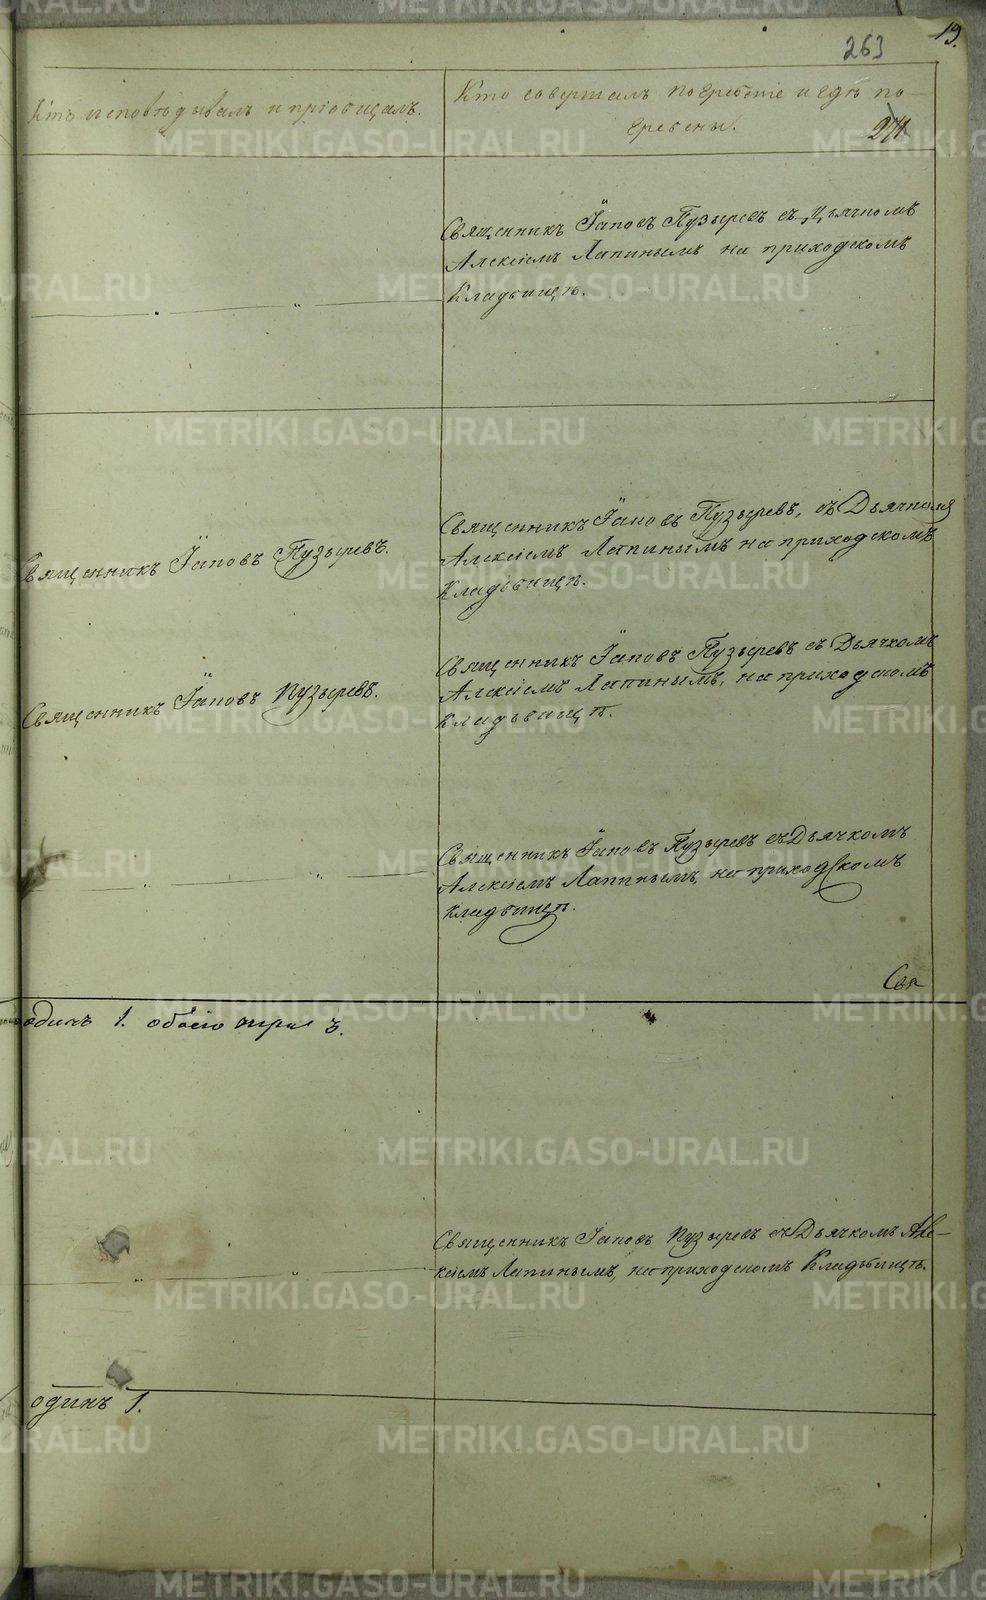 263
19.
Кто исповѣдывалъ и пріобщалъ.
Кто совершалъ погребеніе и гдѣ по-
гребены.
271
Священникъ Іаповъ Пузыревъ съ Дьячкомъ
Алексіемъ Лапинымъ на приходскомъ
Кладбищѣ.
Священникъ Іаповъ Пузыревъ.
Священникъ Іаповъ Пузыревъ, съ Дьячкомъ
Алексіемъ Лапинымъ на приходскомъ
Кладбищѣ.
Священникъ Іаповъ Пузыревъ.
Священникъ Іаповъ Пузыревъ съ Дьячкомъ
Алексіемъ Лапинымъ, на приходскомъ
Кладбищѣ.
Священникъ Іаповъ Пузыревъ съ Дьячкомъ
Алексіемъ Лапинымъ, на приходскомъ
кладбищѣ.
Свя
одинъ 1. обоего три 3.
Священникъ Іаповъ Пузыревъ съ Дьячкомъ Але-
ксіемъ Лапинымъ, на приходскомъ Кладбищѣ.
одинъ 1.
METRIKI.GASO-URAL.RU